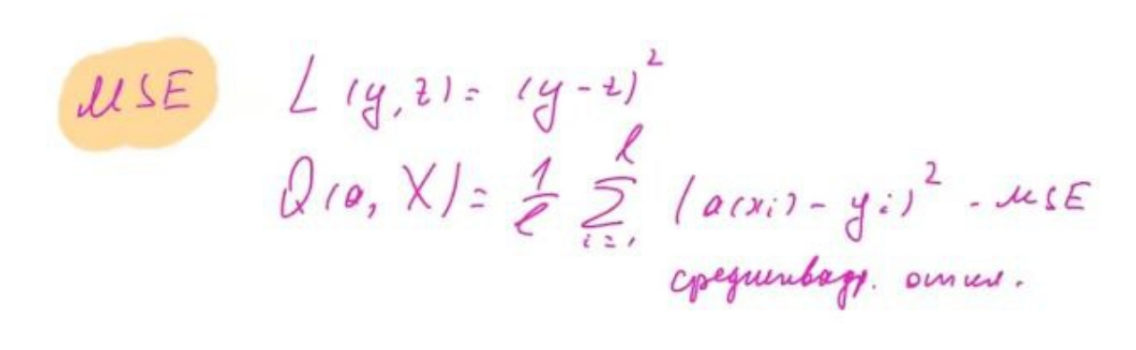 MSE L(y, z) = (y - z)²
Q(a, X) = 1/ℓ ∑ᵢ₌₁^ℓ (a(xᵢ) - yᵢ)² - MSE
среднеквадр. откл.